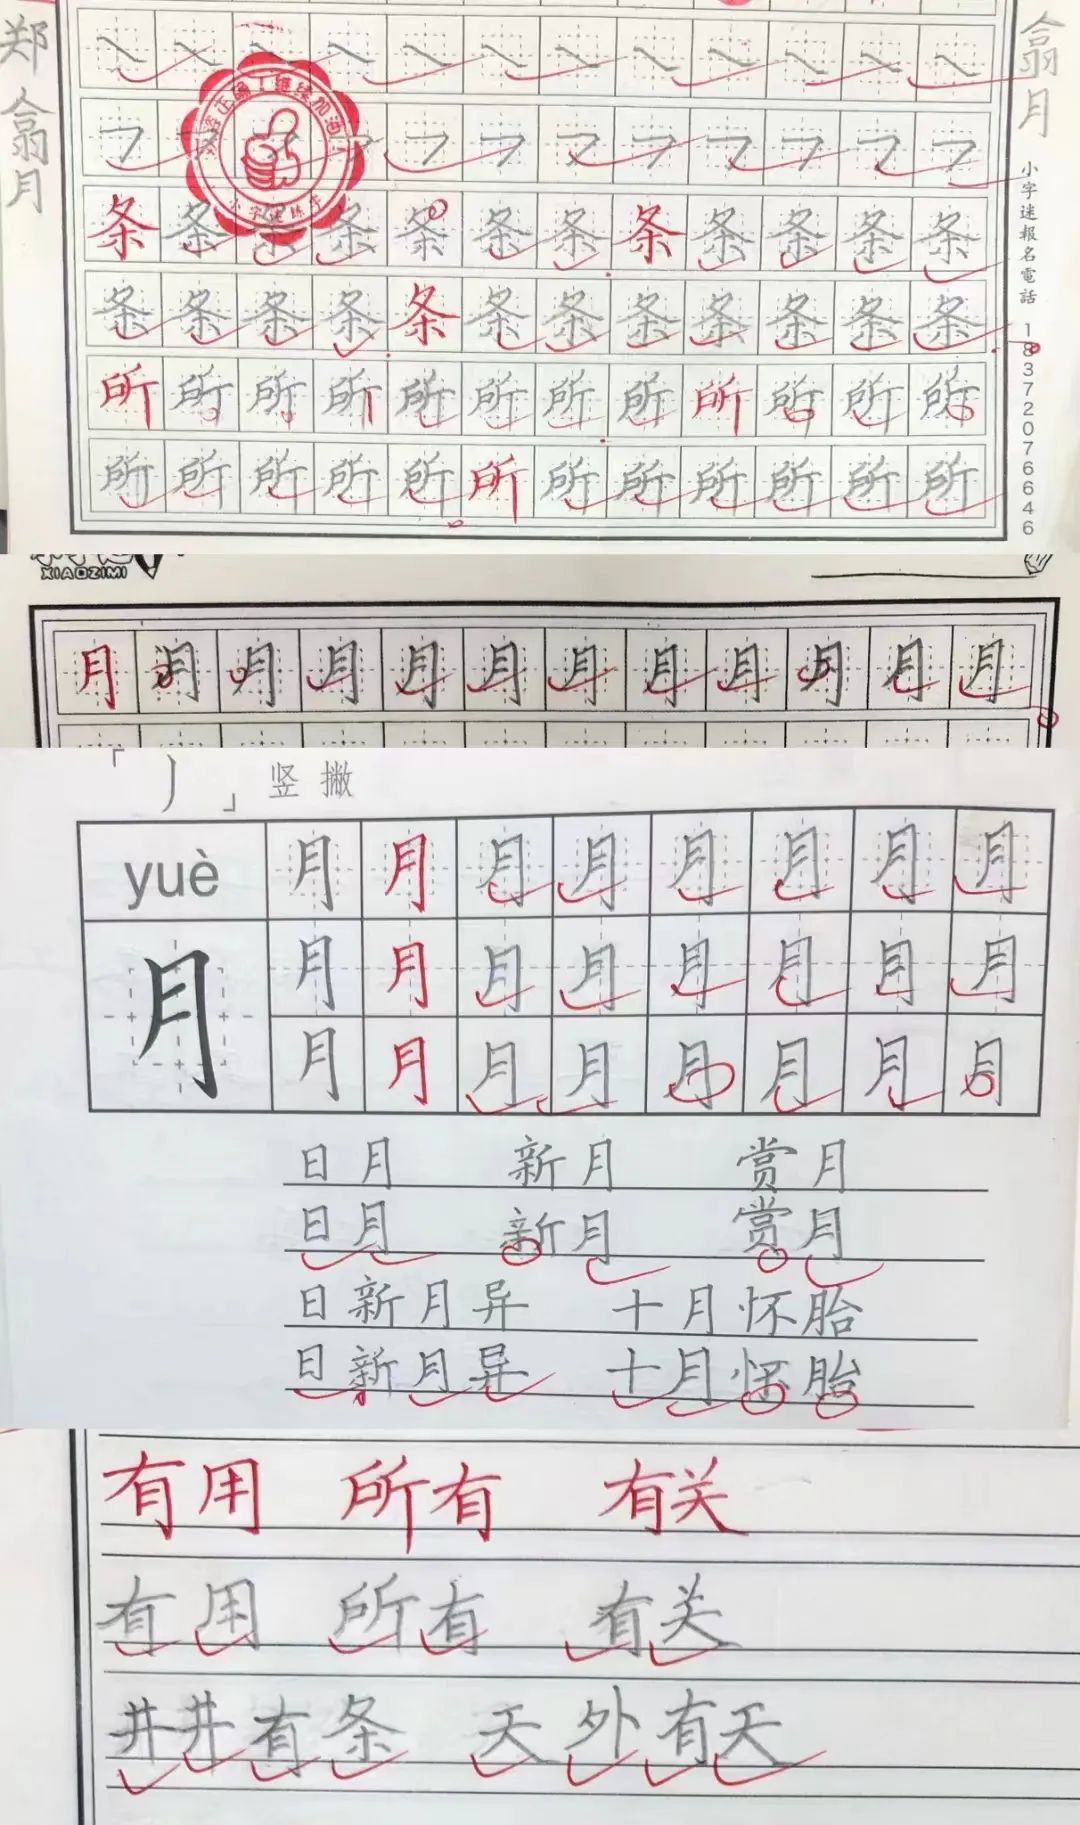 郑翕月
翕月
小字迷報名電話 18372076646
㇏ ㇏ ㇏ ㇏ ㇏ ㇏ ㇏ ㇏ ㇏ ㇏ ㇏ ㇏
㇇ ㇇ ㇇ ㇇ ㇇ ㇇ ㇇ ㇇ ㇇ ㇇ ㇇ ㇇
条条条条条条条条条条条条
条条条条条条条条条条条条
所所所所所所所所所所所所
所所所所所所所所所所所所
XIAOZIMI
月月月月月月月月月月月月
「丿」竖撇
yuè 月月月月月月月月
月 月月月月月月月月
月月月月月月月月
日月 新月 赏月
日月 新月 赏月
日新月异 十月怀胎
日新月异 十月怀胎
有用 所有 有关
有用 所有 有关
井井有条 天外有天